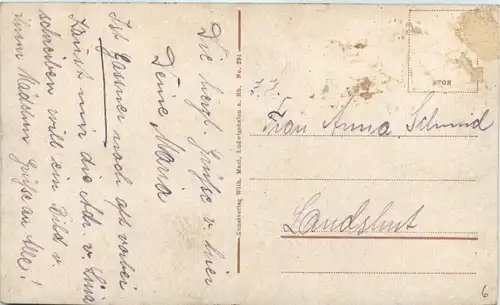 Die herzl. Grüße v. hier
Deine Maria
Ist Gassner noch oft vorbei
Kannst mir die Adr. v.
schreiben will ein Bild v.
einem Mädchen Grüße an Alle!
Kunstverlag Wilh. Mast, Ludwigshafen a. Rh. No. 291
NPON
Frau Anna Schmid
Landshut
6